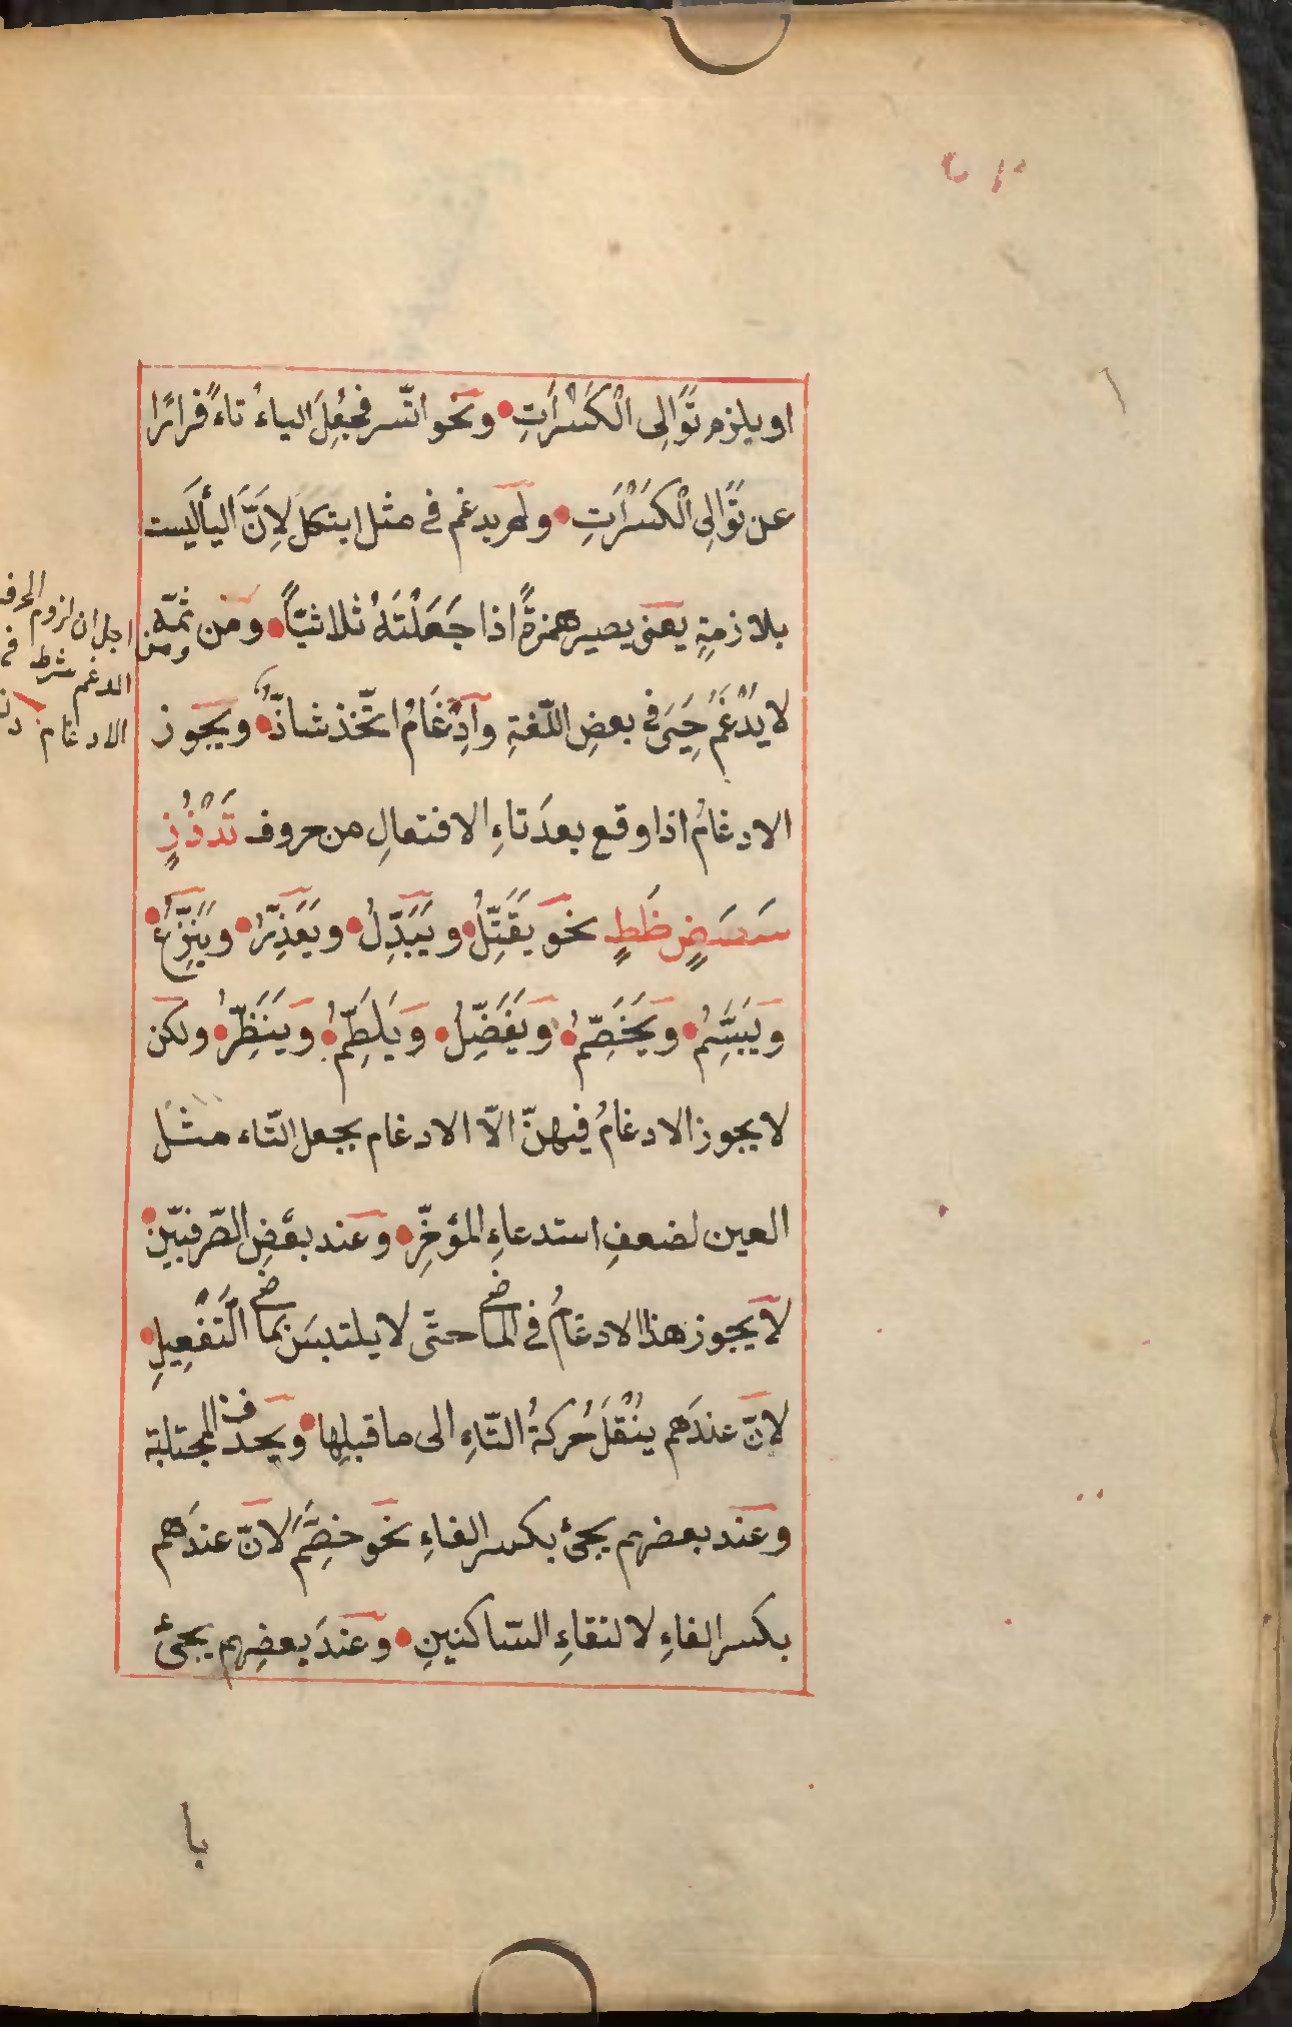 او يلزم تَوَالِى الْكَسْرَاتِ ونحو اتّسر فجُعِلَ الياءُ تاءً فرارًا
عن تَوَالِى الْكسَرْاتِ ولم يدغم فى مثل ايتكل لِاَنَّ اليأ لَيست
بلازمةٍ يعنى يصير همزةً اذا جَعَلْتَهُ ثلاثيّاً ومن ثمّه
لا يُدْغَمُ حَيِىَ فى بعضِ اللّغةِ وَاِدْغَامُ اتّخذ شاذٌّ ويجوز
الادغامُ اذا وقع بعدَ تاءِ الافتعالِ من حروف تَدْذُزٍ
سَصَضٍ ظَطٍ نحَو يَقَتِّلُ ويَبَدِّلُ ويَعَذِّرُ ويَنَزِّعُ
وَيَبَسِّمُ وَيَخَصِّمُ وَيَفَضِّلُ وَيَلَطِّمُ وَيَنَظِّرُ ولكن
لا يجوز الادغامُ فيهنّ الّا الادغام بجعل التّاء مثل
العين لضعفِ استدعاءِ المؤخّرِ وعند بعَضِ الصّرفيّين
لا يجوز هذا الادغامُ فى الماضى حتّى لا يلتبسَ بماضى التّفْعِيلِ
لانّ عندَهم ينْقَلُ حُركةُ التّاءِ الى ما قبلِها ويحذف المجتلبة
وعند بعضهم يجئ بكسر الفاءِ نحَو خِصَّمَ لانّ عندَهم
بكسر الفاءِ لالتقاءِ السّاكنينِ وعندَ بعضِهم يجئ
با
ومن
اجل ان لزوم الحرف
المدغم شرط فى
الادغام